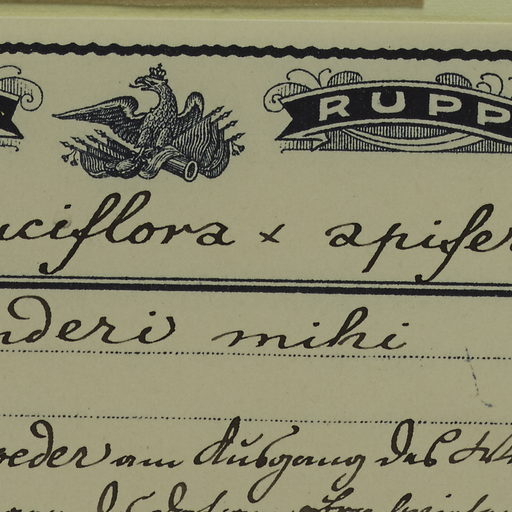 RUPP
uciflora × apifer
nderi mihi
oeder am Ausgang des